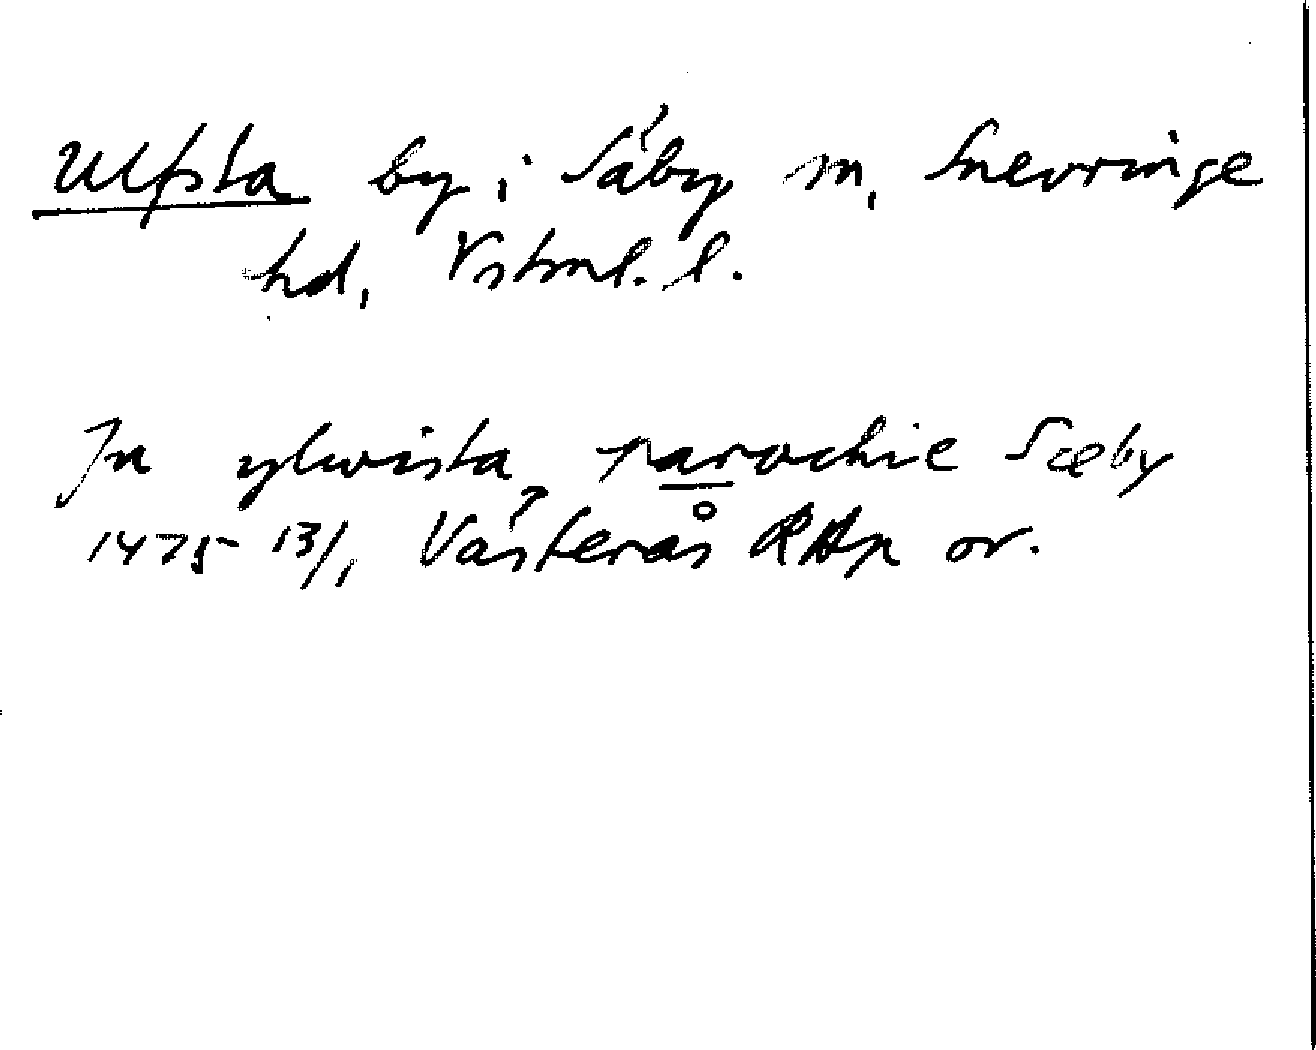 Ulfsta by i Säby sn, Snevringe
hd, Vstml. l.
In ylwista parochie Sæby
1475 13/1 Västerås RAp or.